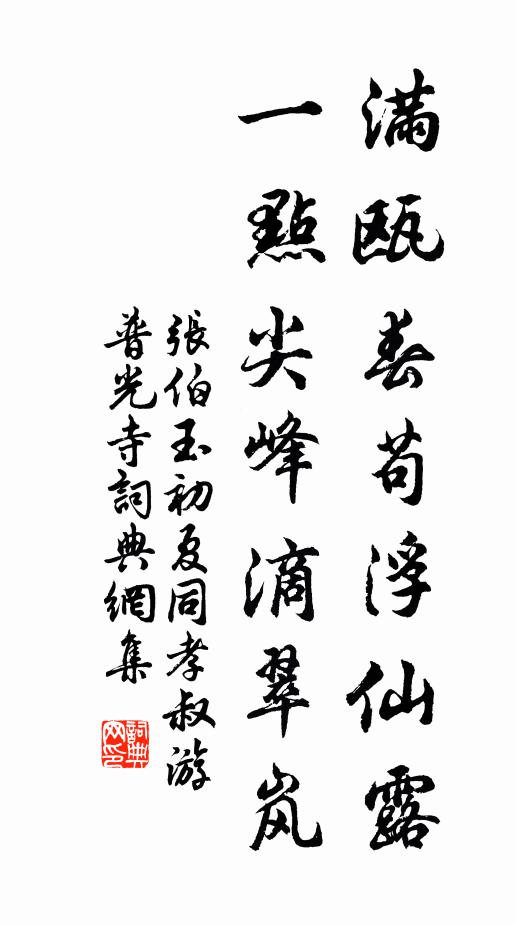 满瓯春苟浮仙露
一點尖峰滴翠岚
張伯玉初夏同孝叔游
普光寺詞典網集
詞典
网印